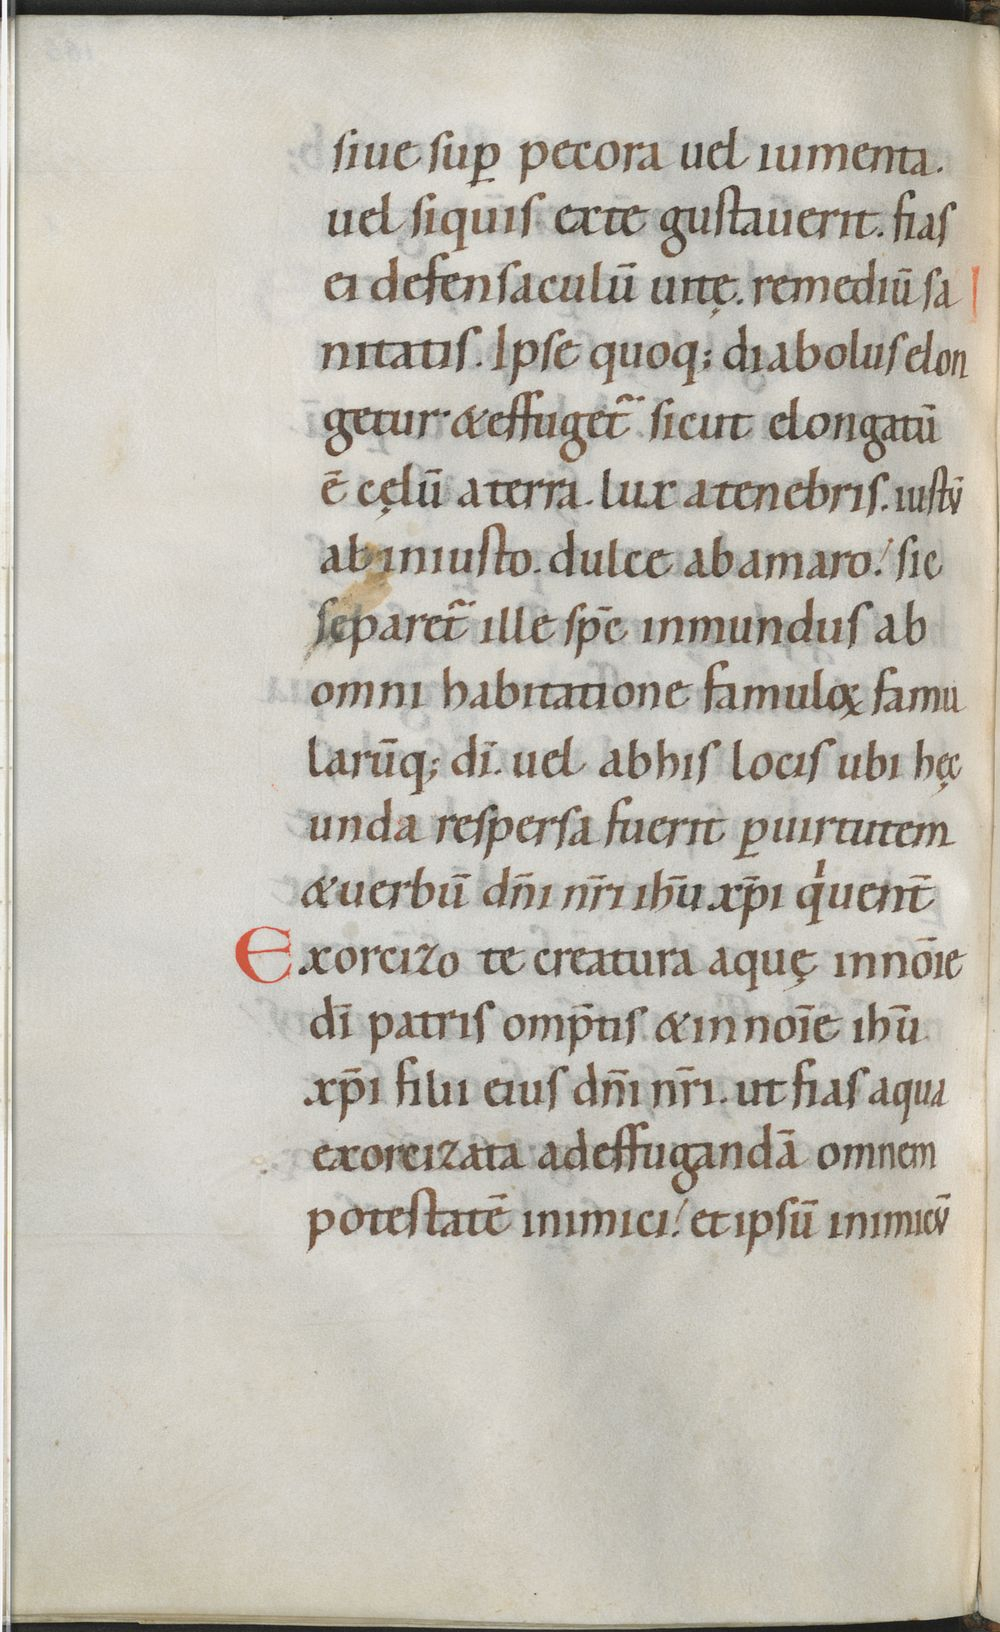 siue sup̱ pecora uel iumenta.
uel siquis exte gustauerit. fias
ei defensaculū uitę. remediū sa
nitatis. Ipse quoq; diabolus elon
getur &effuget᷑ sicut elongatū
ē cęlū a terra. lux a tenebris. iustū
ab iniusto. dulce ab amaro. sic
separet᷑ ille sp̄c inmundus ab
omni habitatione famuloꝝ famu
larūq; dī. uel abhis locis ubi hęc
unda respersa fuerit ꝑuirtutem
&uerbū dn̄i nr̄i ihū xp̄i qͥuent̄
Exorcizo te creatura aquę innōie
dī patris omp̄tis &innoīe ihū
xp̄i filii eius dn̄i nr̄i. ut fias aqua
exorcizata adeffugandā omnem
potestatē inimici. et ipsū inimicū